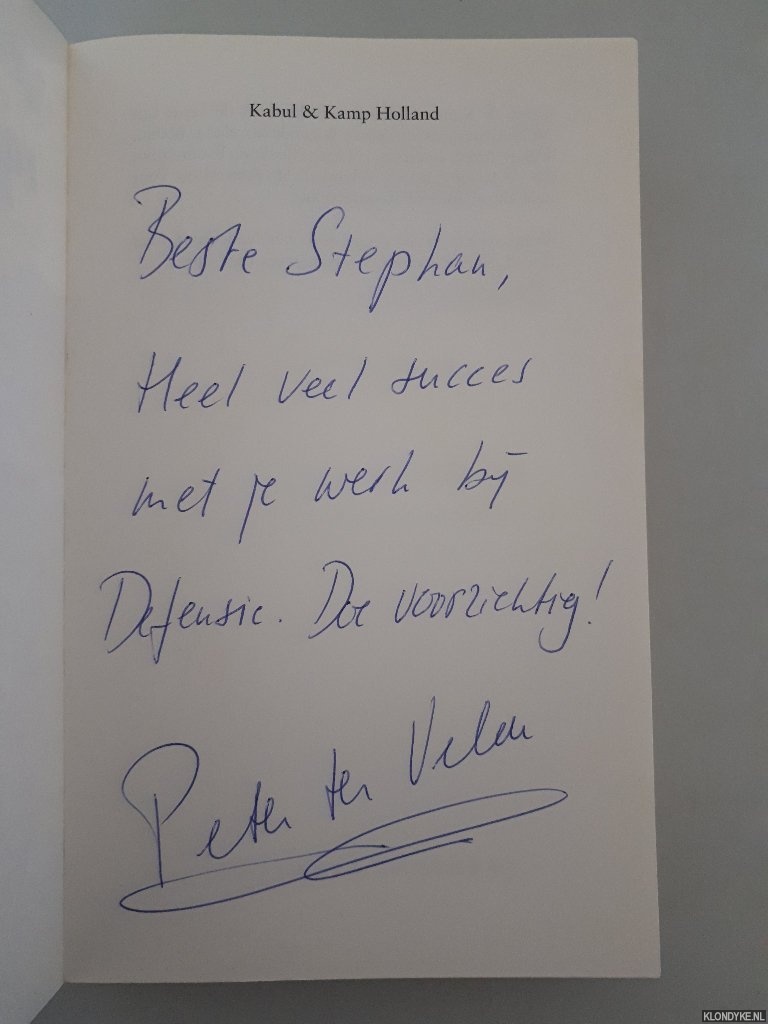 Kabul & Kamp Holland
Beste Stephan,
Heel veel succes
met je werk bij
Defensie. Doe voorzichtig!
Peter ter Velde
KLONDYKE.NL